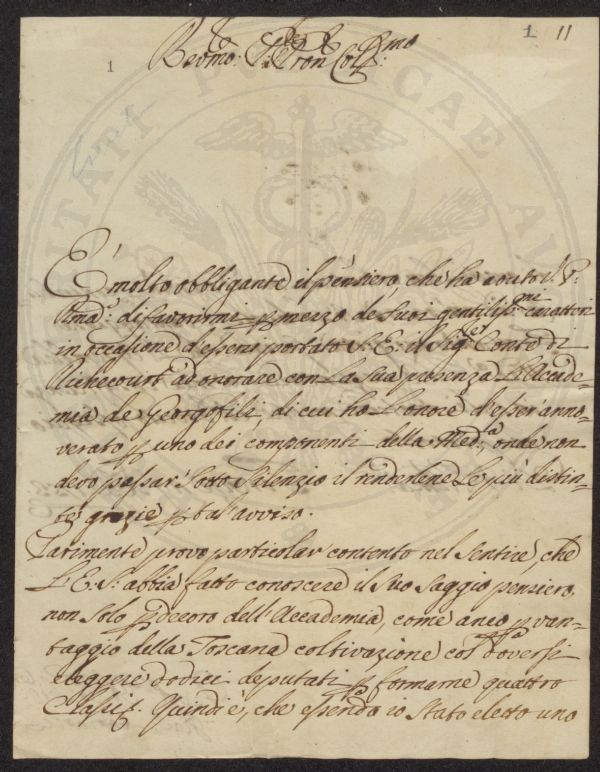 1 11
1
Revmo: Pre Pron Colmo:
È molto obbligante il pensiero, che ha avuto V. P.
Rma: di favorirmi per mezzo de suoi gentilissmi caratteri
in occasione d'essersi portato S. E: il Sigre Conte di
Richecourt ad onorare con la sua presenza L'Accade=
mia de Georgofili, di cui ho L'onore d'esser anno=
verato per uno dei componenti della Medma, onde non
devo passar sotto silenzio il renderlene Le più distin=
te grazie per tal avviso.
Parimente provo particolar contento nel sentire, che
L'E. S. abbia fatto conoscere il suo saggio pensiero,
non solo per decoro dell'Accademia, come anco per van=
taggio della Toscana coltivazione col doversi
eleggere dodici deputati per formarne quattro
Classi. Quindi è, che essendo io stato eletto uno
PUBLICAE